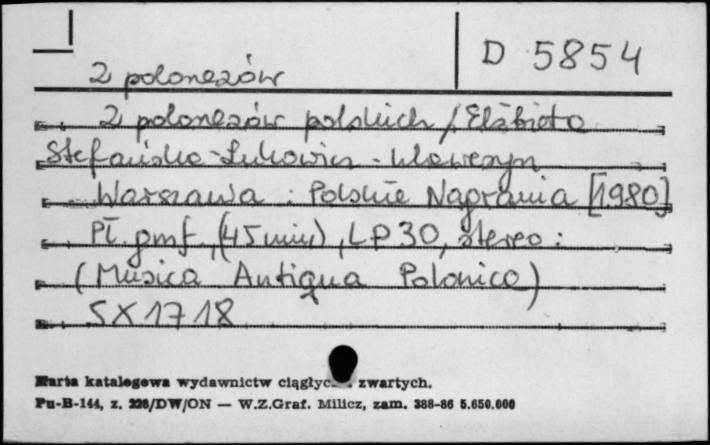 D 5854
2 polonezów
2 polonezów polskich / Elżbieta
Stefańska-Łukowicz - klawesyn
Warszawa : Polskie Nagrania [1980]
Pł. gmf., (45 min), LP 30, stereo :
(Musica Antiqua Polonica)
SX 1718
Karta katalogowa wydawnictw ciągłyc zwartych.
Pu-B-144, z. 226/DW/ON — W.Z.Graf. Milicz, zam. 388-86 5.650.000